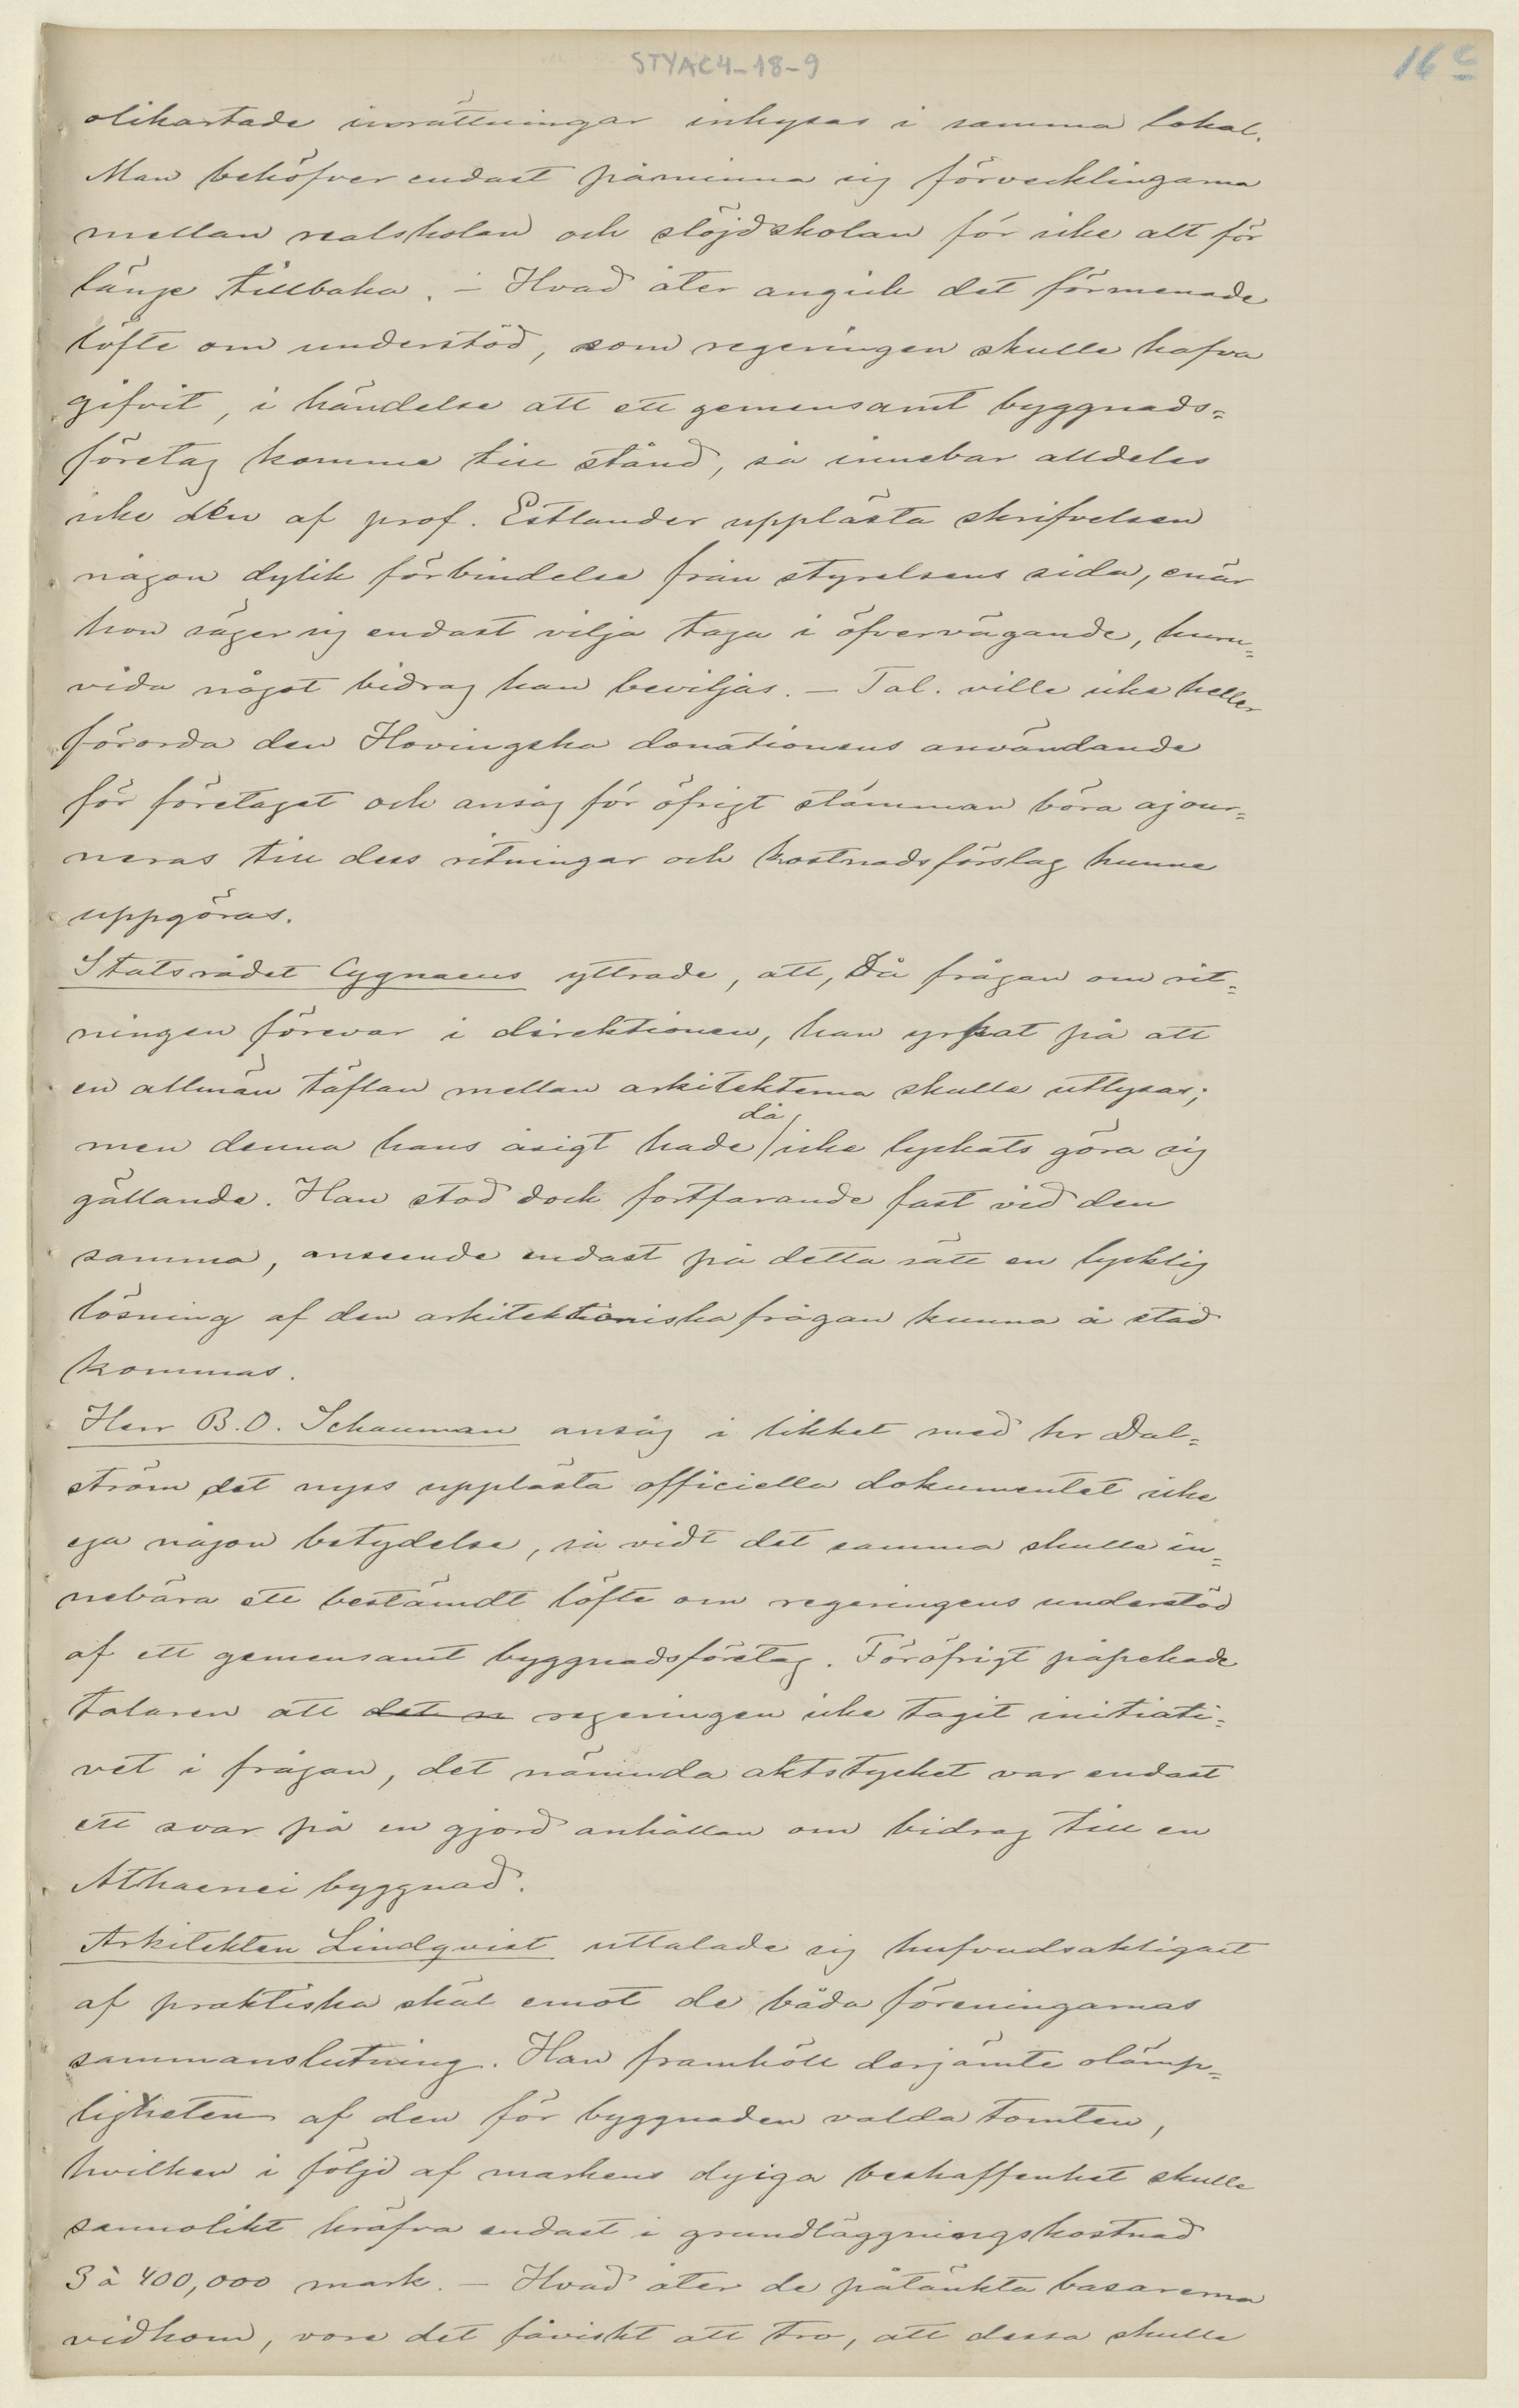 STYAC4-18-9
16 c
olikartade inrättningar inhysas i samma lokal.
Man behöfver endast påminna sig förvecklingarna
mellan realskolan och slöjdskolan för icke allt för
länge tillbaka. – Hvad åter angick det förmenade
löfte om understöd, som regeringen skulle hafva
gifvit, i händelse att ett gemensamt byggnads=
företag komme till stånd, så innebar alldeles
icke den af prof. Estlander upplästa skrifvelsen
någon dylik förbindelse från styrelsens sida, enär
hon säger sig endast vilja taga i öfvervägande, huru=
vida något bidrag kan beviljas. – Tal. ville icke heller
förorda den Hovingska donationens användande
för företaget och ansåg för öfrigt stämman böra ajour=
neras till dess ritningar och kostnadsförslag hunne
uppgöras.
Statsrådet Cygnaeus yttrade, att, då frågan om rit=
ningen förevar i direktionen, han yrkat på att
en allmän täflan mellan arkitekterna skulle utlysas;
då
men denna hans åsigt hade icke lyckats göra sig
gällande. Han stod dock fortfarande fast vid den
samma, anseende endast på detta sätt en lycklig
lösning af den arkitektoniska frågan kunna å stad
kommas.
Herr B.O. Schauman ansåg i likhet med hr Dal=
ström det nyss upplästa officiella dokumentet icke
ega någon betydelse, så vidt det samma skulle in=
nebära ett bestämdt löfte om regeringens understöd
af ett gemensamt byggnadsföretag. Föröfrigt påpekade
talaren att det n regeringen icke tagit initiati=
vet i frågan, det nämnda aktstycket var endast
ett svar på en gjord anhållan om bidrag till en
Athaenei byggnad.
Arkitekten Lindqvist uttalade sig hufvudsakligast
af praktiska skäl emot de båda föreningarnas
sammanslutning. Han framhöll derjämte olämp=
ligheten af den för byggnaden valda tomten,
hvilken i följd af markens dyiga beskaffenhet skulle
sannolikt kräfva endast i grundläggningskostnad
3 à 400,000 mark. – Hvad åter de påtänkta basarerna
vidkom, vore det fåviskt att tro, att dessa skulle